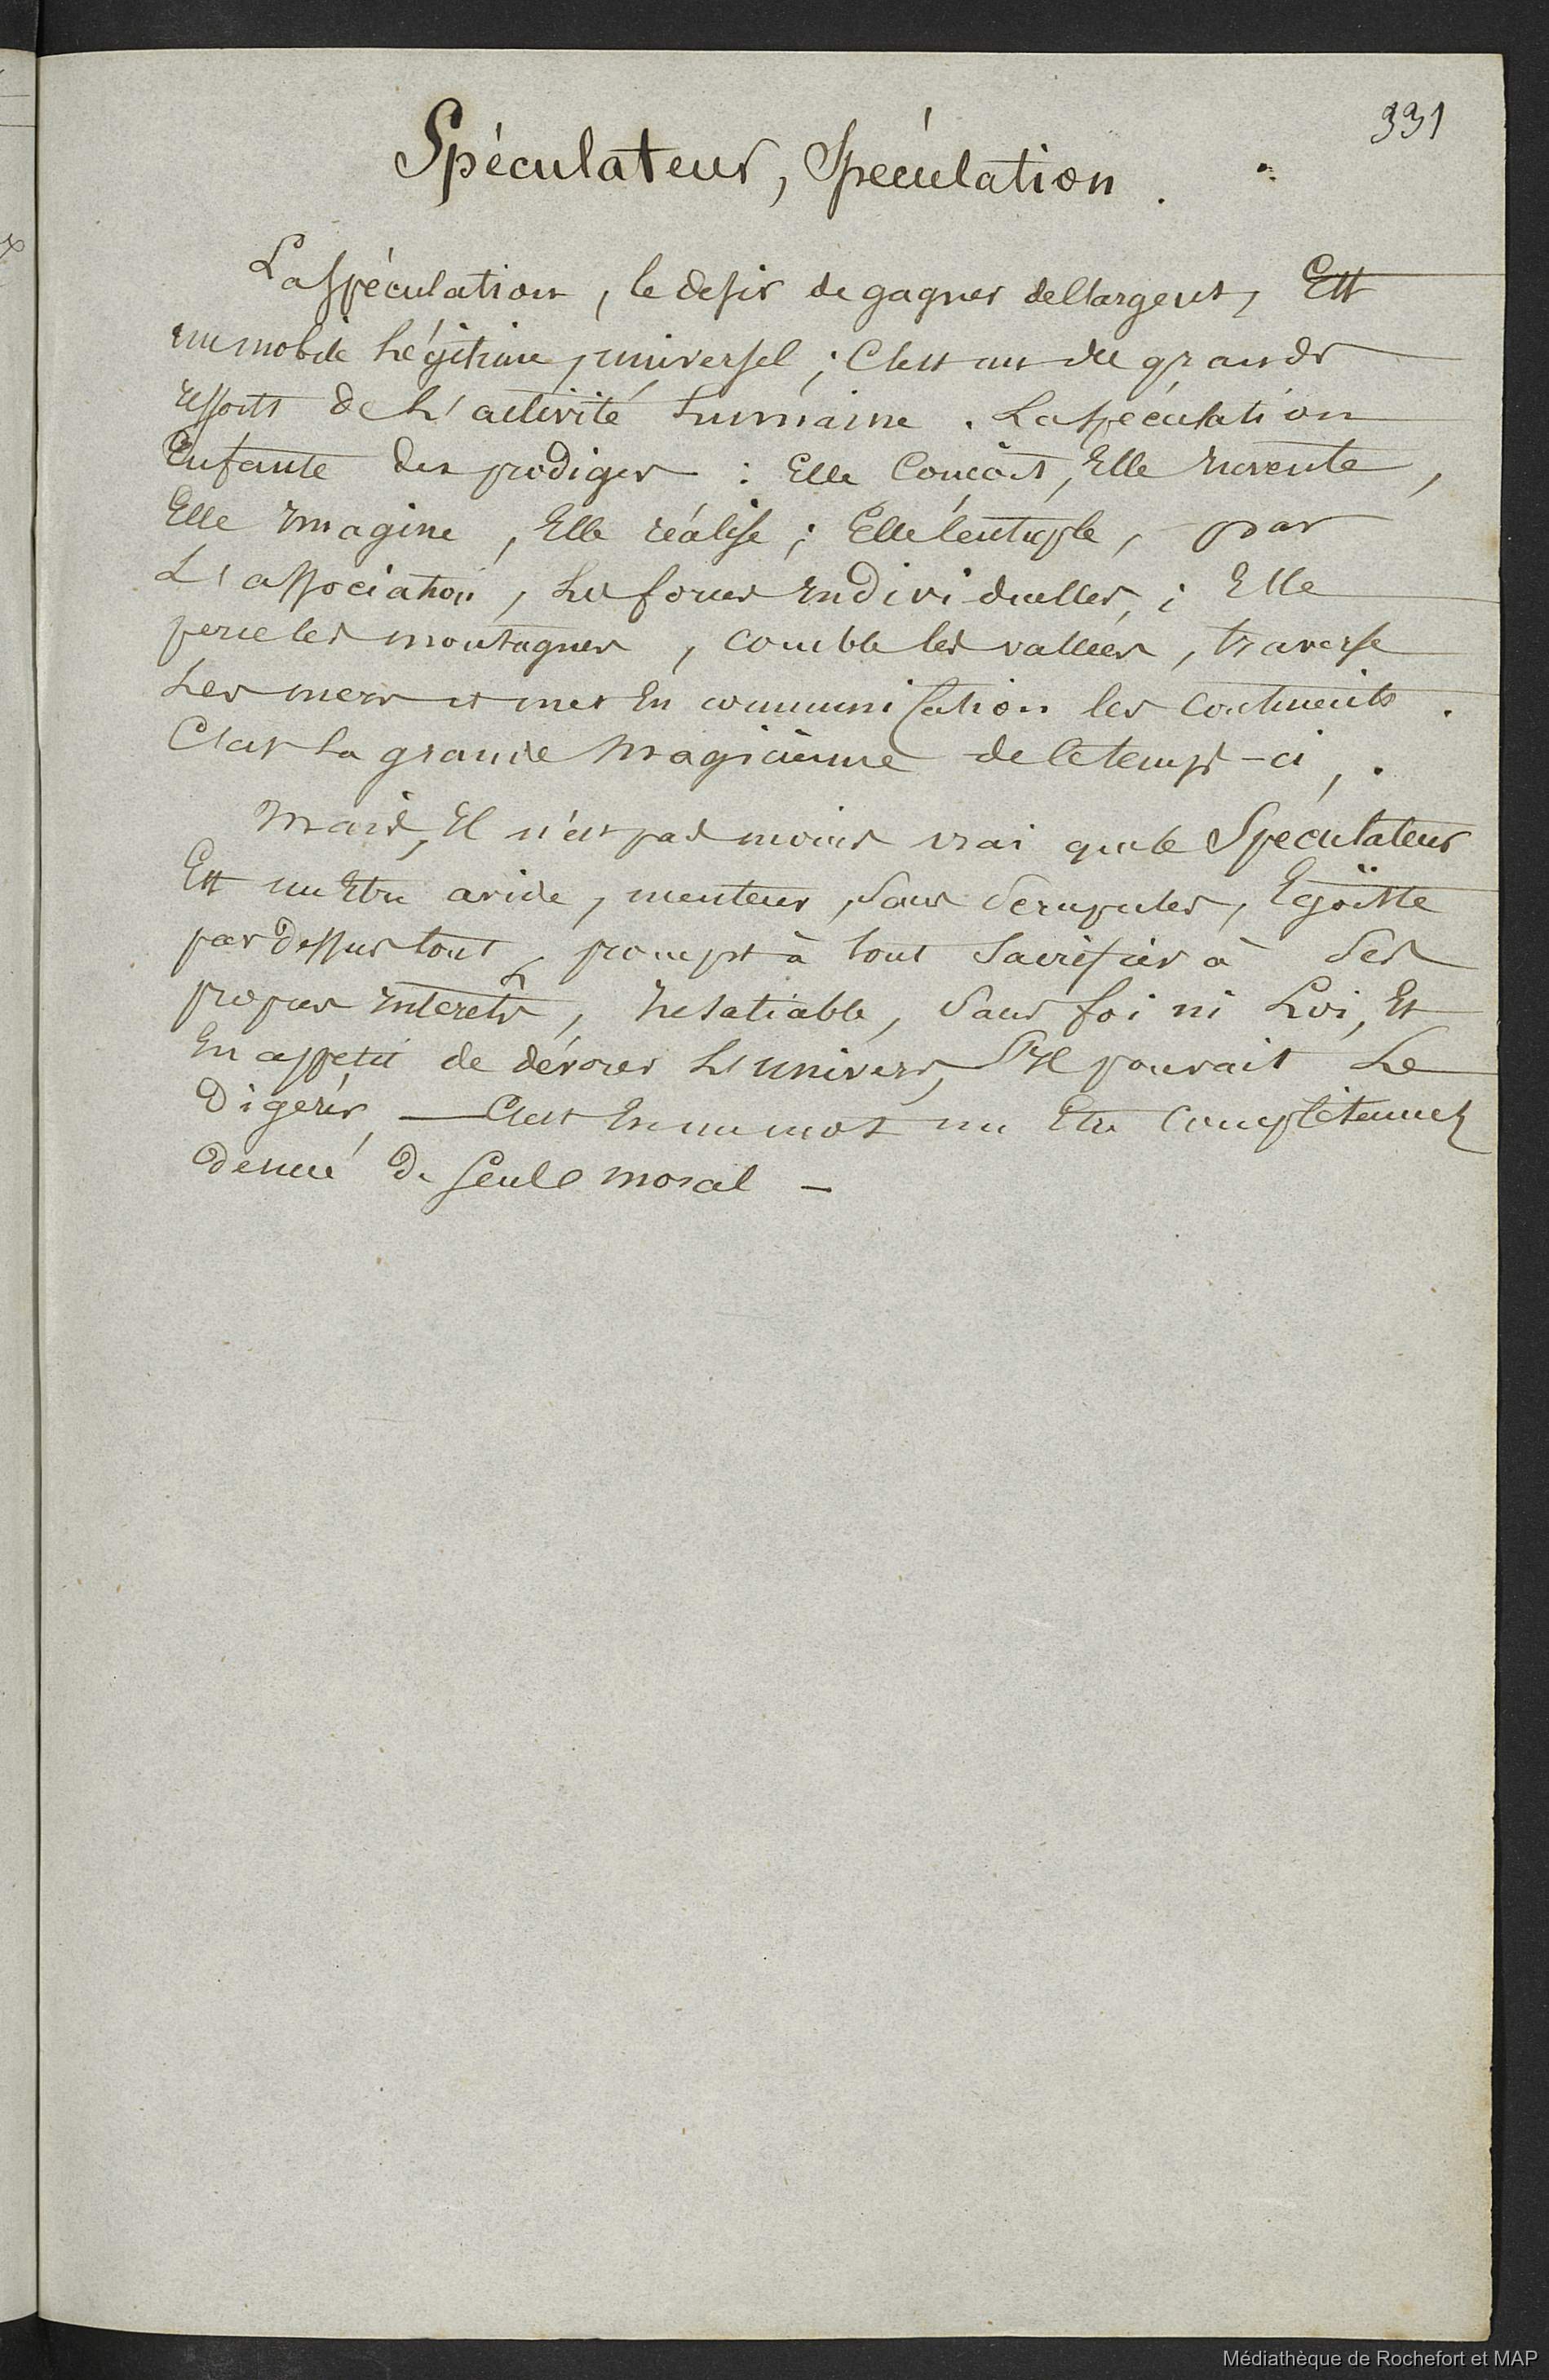 331
Spéculateur, Spéculation.
La Spéculation, le desir de gagner de l'argent, Est
un mobile Légitime, universel ; C'est un des grands
ressorts de L'activité humaine. La spéculation
Enfante des prodiges : Elle Conçoit, Elle invente,
Elle imagine, Elle réalise ; Elle centuple, par
L'association, Les forces individuelles ; Elle
perce les montagnes, comble les vallées, traverse
Les mers et met En communication les Continents.
C'est La grande Magicienne de ce temps-ci.
Mais, Il n'est pas moins vrai que le Spéculateur
Est un Etre avide, menteur, Sans Scrupules, Egoïste
par dessus tout, prompt à tout Sacrifier à Ses
propres interets, insatiable, Sans foi ni Loi, Et
En appetit de dévorer L'univers, S'Il pouvait Le
Digérer — C'est En un mot un Etre Complètement
denué De Sens moral —
Médiathèque de Rochefort et MAP